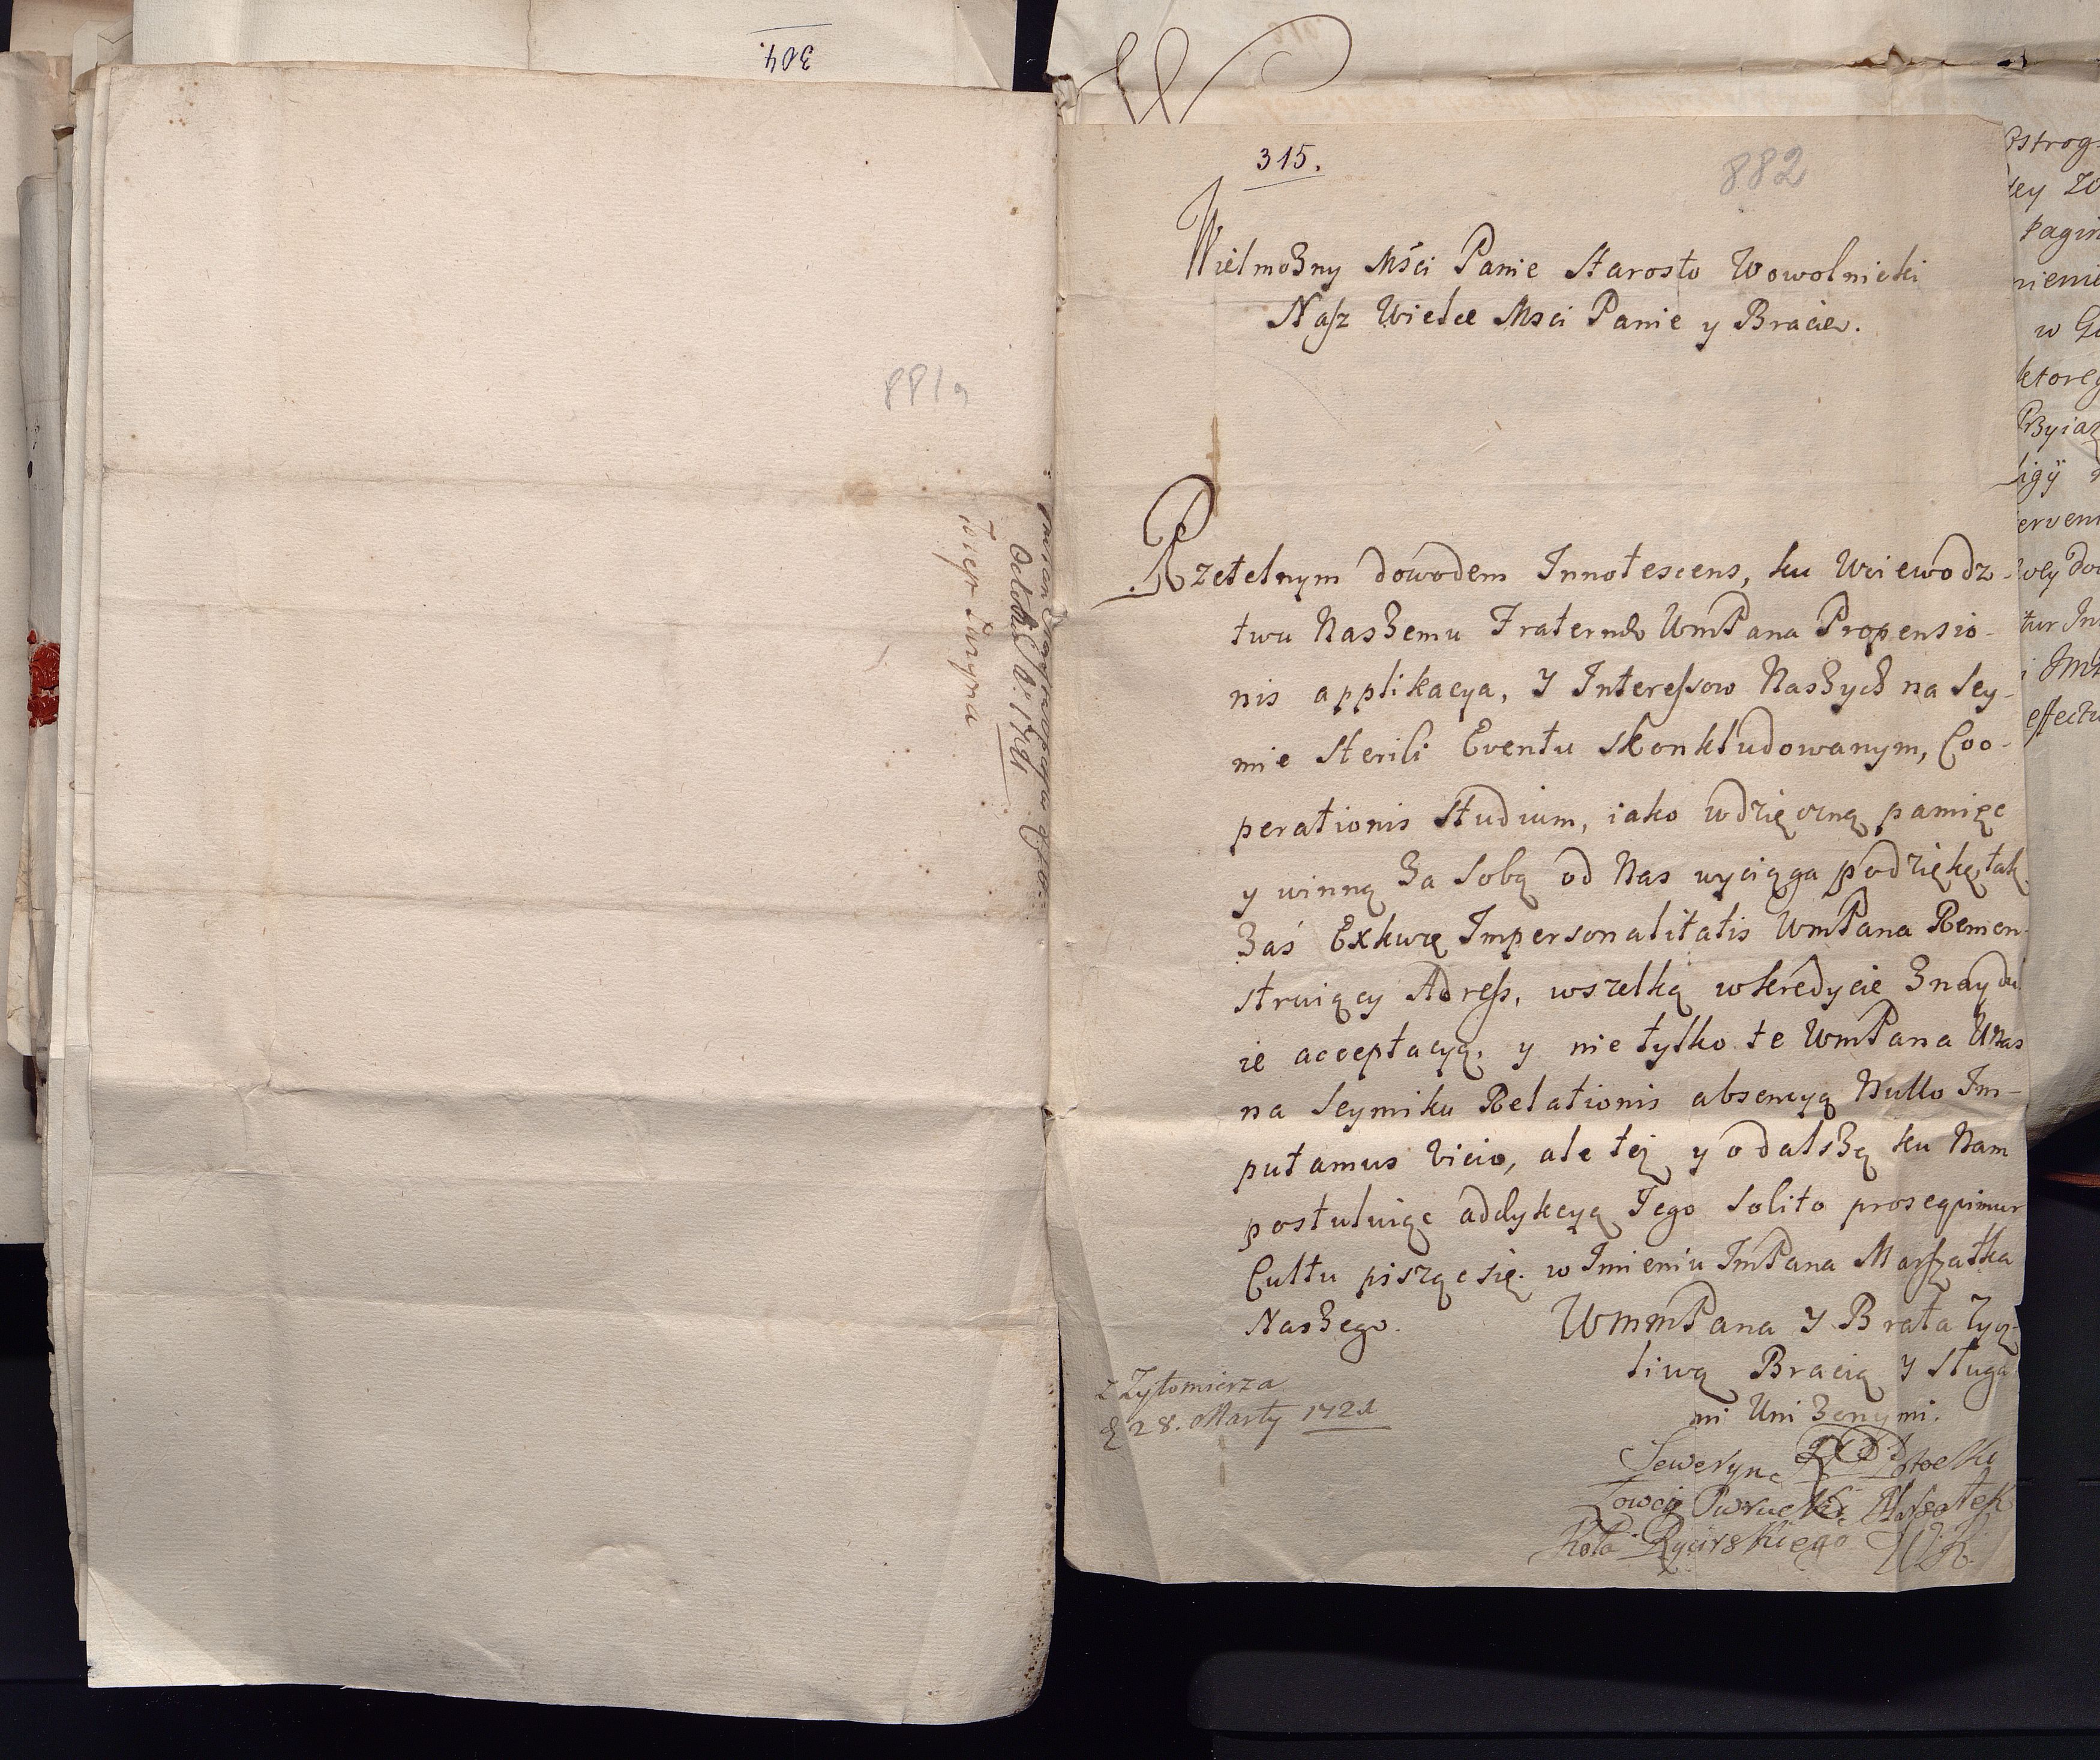 304.
881a
Octobris 1721
315.
882
Wielmożny Mści Panie Starosto Wowolnicki
Nasz Wielce Msci Panie y Bracie.
Rzetelnym dowodem Innotescens, ku Woiewodz-
twu Naszemu Fraternæ WmPana Propensio-
nis applikacya, y Interessow Naszych na Sey-
mie Sterili Eventu skonkludowanym, Coo-
perationis Studium, iako wdzięczną pamięc
y winną za sobą od Nas wyciąga podziękę, tak
zaś Exkuzę Impersonalitatis WmPana Remon-
struiący Adress, wszelką w kredycie znaydu
ie acceptacyą, y nie tylko te WmPana U Nas
na Seymiku Relationis absencyą Nullo Im-
putamus vicio, ale tez y o dalszą ku Nam
postuluiąc addykcyą Jego Solito proseqvimur
Cultu pisząc się. w Imieniu ImPana Marszałka
Naszego. WmmPana y Brata Zycz-
liwą Bracią y sługa
mi Unizonymi.
z Zytomierza
d 28. Marty 1721
Seweryn Potocki
Łowczy Marszałek
Koła Rycirskiego W. K.
Ostrog
Pagin
nienie
w
ktoreg
effectu